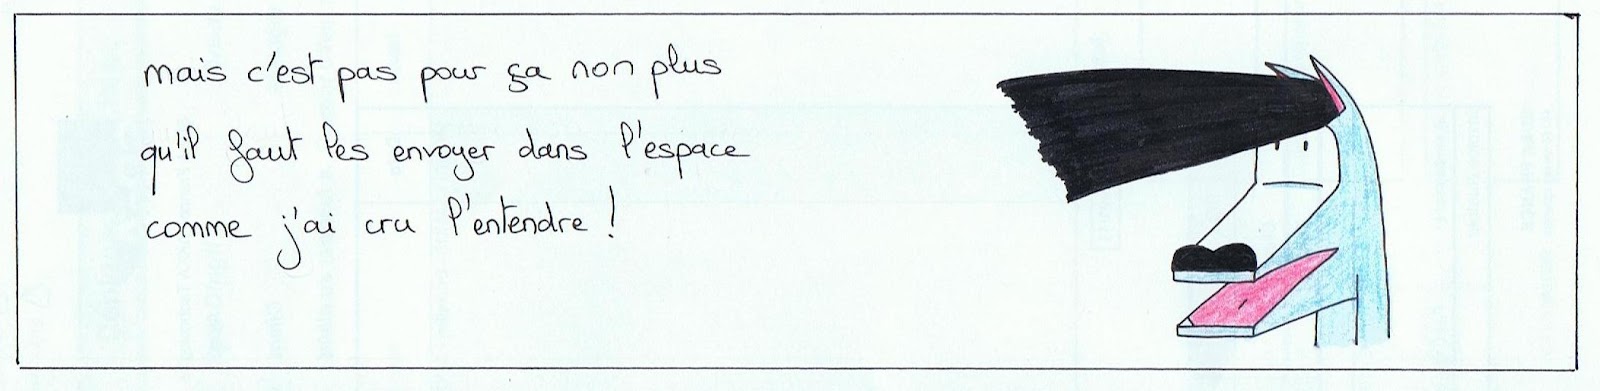 mais c'est pas pour ça non plus
qu'il faut les envoyer dans l'espace
comme j'ai cru l'entendre !